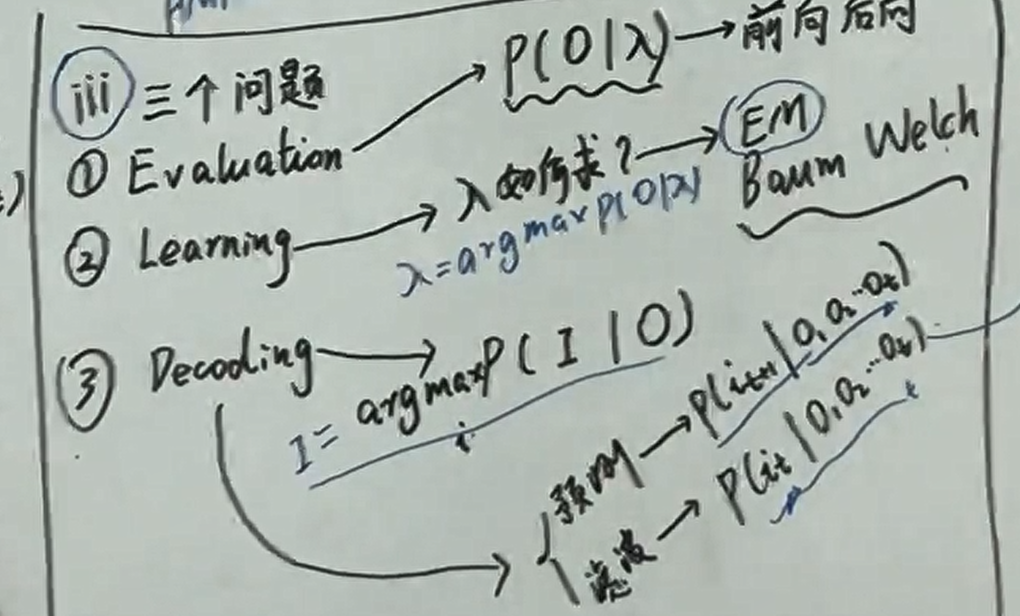 iii 三个问题
① Evaluation → P(O|λ) → 前向后向
② Learning → λ如何求? → EM
Baum Welch
λ=argmax P(O|λ)
③ Decoding → I = argmax P(I|O)
i
预测 → P(i_{t+1}|o₁o₂…o_t)
滤波 → P(i_t|o₁o₂…o_t)
t